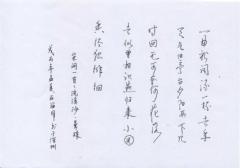 一曲新词酒一杯去年
天气旧亭台夕阳西下几
时回无可奈何花落
去似曾相识燕归来小园
香径独徘徊
宋词一首浣溪沙晏殊